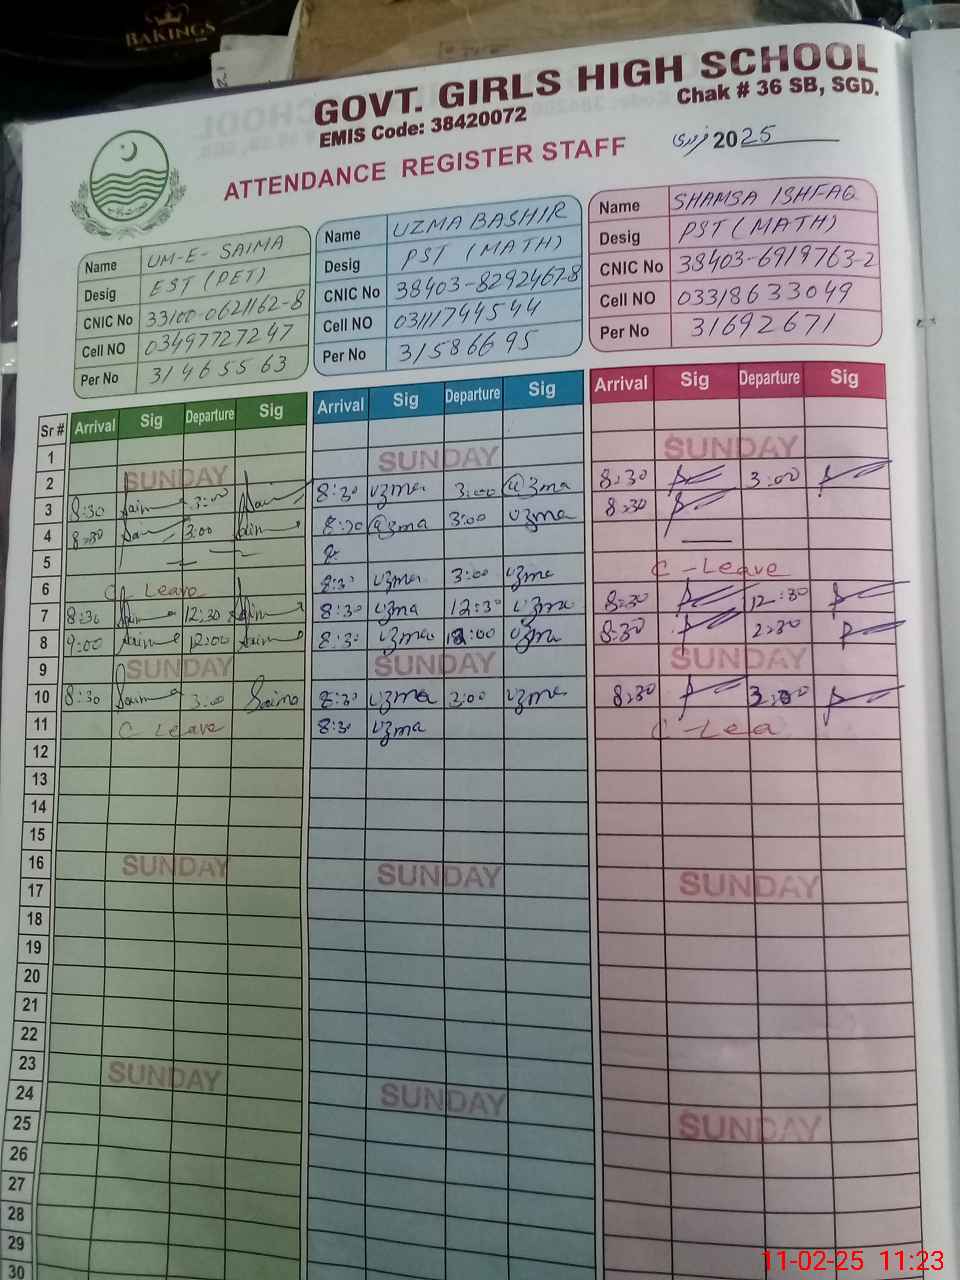 BAKINGS
GOVT. GIRLS HIGH SCHOOL
EMIS Code: 38420072 Chak # 36 SB, SGD.
ATTENDANCE REGISTER STAFF فروری 2025
Name UM-E-SAIMA
Desig EST (PET)
CNIC No 33100-0621162-8
Cell NO 03497727247
Per No 31465563
Name UZMA BASHIR
Desig PST (MATH)
CNIC No 38403-8292467-8
Cell NO 03111744544
Per No 31586695
Name SHAMSA ISHFAQ
Desig PST (MATH)
CNIC No 38403-6919763-2
Cell NO 03318633049
Per No 31692671
Sr # Arrival Sig Departure Sig Arrival Sig Departure Sig Arrival Sig Departure Sig
1
2 SUNDAY SUNDAY SUNDAY
3 8:30 Saima 3:00 Saima 8:30 uzma 3:00 uzma 8:30 3:00
4 8:30 Saim 3:00 Saim 8:30 uzma 3:00 uzma 8:30
5 — 8: —
6 C Leave 8:3 uzma 3:00 uzma C-Leave
7 8:30 Saim 12:30 Saim 8:30 uzma 12:30 uzma 8:30 12:30
8 9:00 Saim 12:00 Saim 8:3 uzma 12:00 uzma 8:30 2:30
9 SUNDAY SUNDAY SUNDAY
10 8:30 Saima 3:00 Saima 8:30 uzma 3:00 uzma 8:30 3:00
11 C Leave 8:30 uzma C-Lea
12
13
14
15
16 SUNDAY SUNDAY SUNDAY
17
18
19
20
21
22
23 SUNDAY SUNDAY SUNDAY
24
25
26
27
28
29
30
11-02-25 11:23